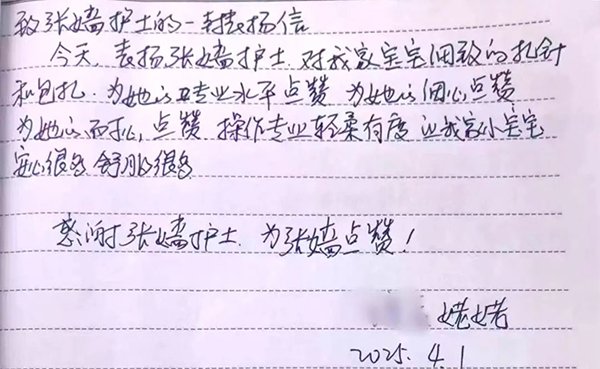 致张嫱护士的一封表扬信
今天，表扬张嫱护士，对我家宝宝细致的扎针
和包扎。为她的专业水平点赞 为她的细心点赞
为她的耐心，点赞 操作专业轻柔有度 让我家小宝宝
安心很多 舒服很多
感谢张嫱护士，为张嫱点赞！
姥姥
2025.4.1